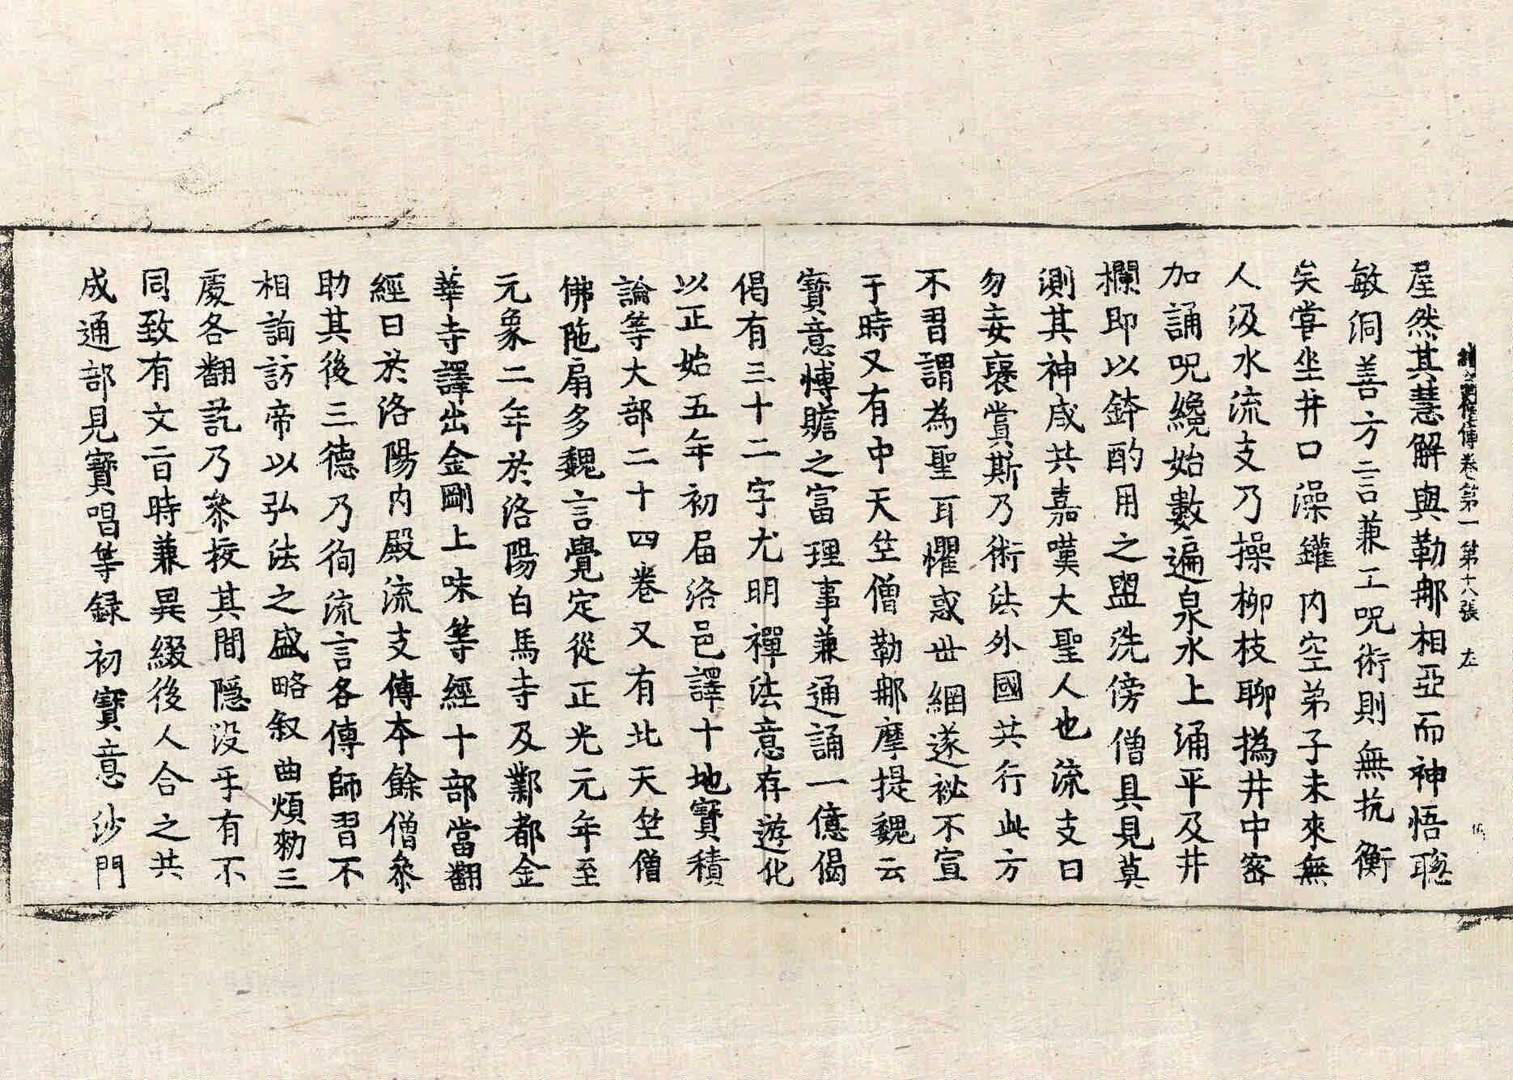 續高僧傳卷第一 第十八張 左
屋然其慧解與勒那相亞而神悟聡
敏洞善方言兼工呪術則無抗衡
矣嘗坐井口澡鑵内空弟子未來無
人汲水流支乃操柳枝聊撝井中密
加誦呪纔始數遍泉水上涌平及井
欄即以鉢酌用之盥洗傍僧具見莫
測其神咸共嘉嘆大聖人也流支曰
勿妄褒賞斯乃術法外國共行此方
不習謂為聖耳懼惑世網遂祕不宣
于時又有中天竺僧勒那摩提魏云
寶意博贍之富理事兼通誦一億偈
偈有三十二字尤明禪法意存遊化
以正始五年初届洛邑譯十地寶積
論等大部二十四卷又有北天竺僧
佛陁扇多魏言覺定從正光元年至
元象二年於洛陽白馬寺及鄴都金
華寺譯出金剛上味等經十部當翻
經日於洛陽内殿流支傳本餘僧叅
助其後三德乃徇流言各傳師習不
相詢訪帝以弘法之盛略叙曲煩勑三
處各翻訖乃叅挍其間隠没乎有不
同致有文言時兼異綴後人合之共
成通部見寶唱等録初寶意沙門